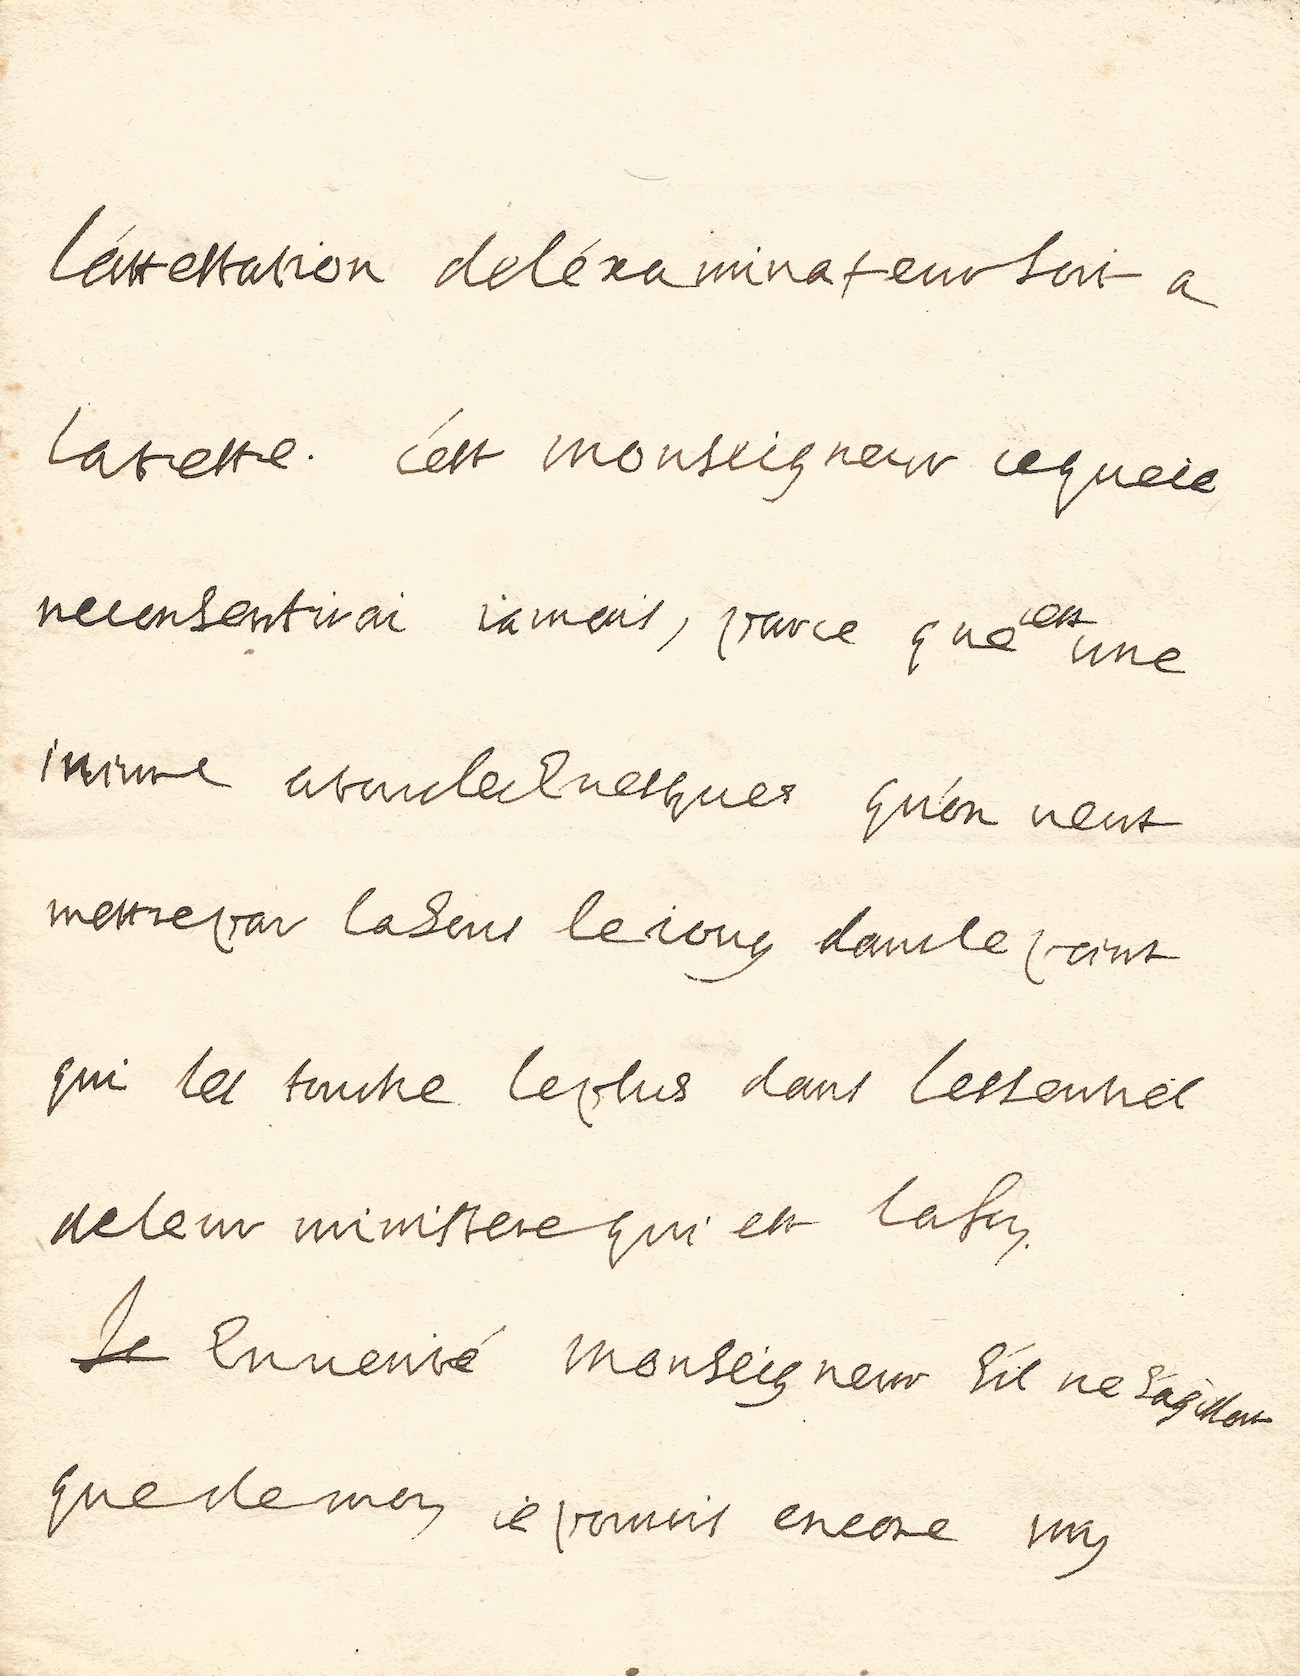 l'attestation de l'éxaminateur soit a
la teste. c'est monseigneur ce que ie
ne consentirai iamais, parce que c'est une
iniure a tous les Euesques qu'on ueut
mettre par la sous le ioug dans le point
qui les touche le plus dans l'essentiel
de leur ministere qui est la foy.
Je En uerité monseigneur s'il ne s'agissoit
que de moy ie pourrois encore my